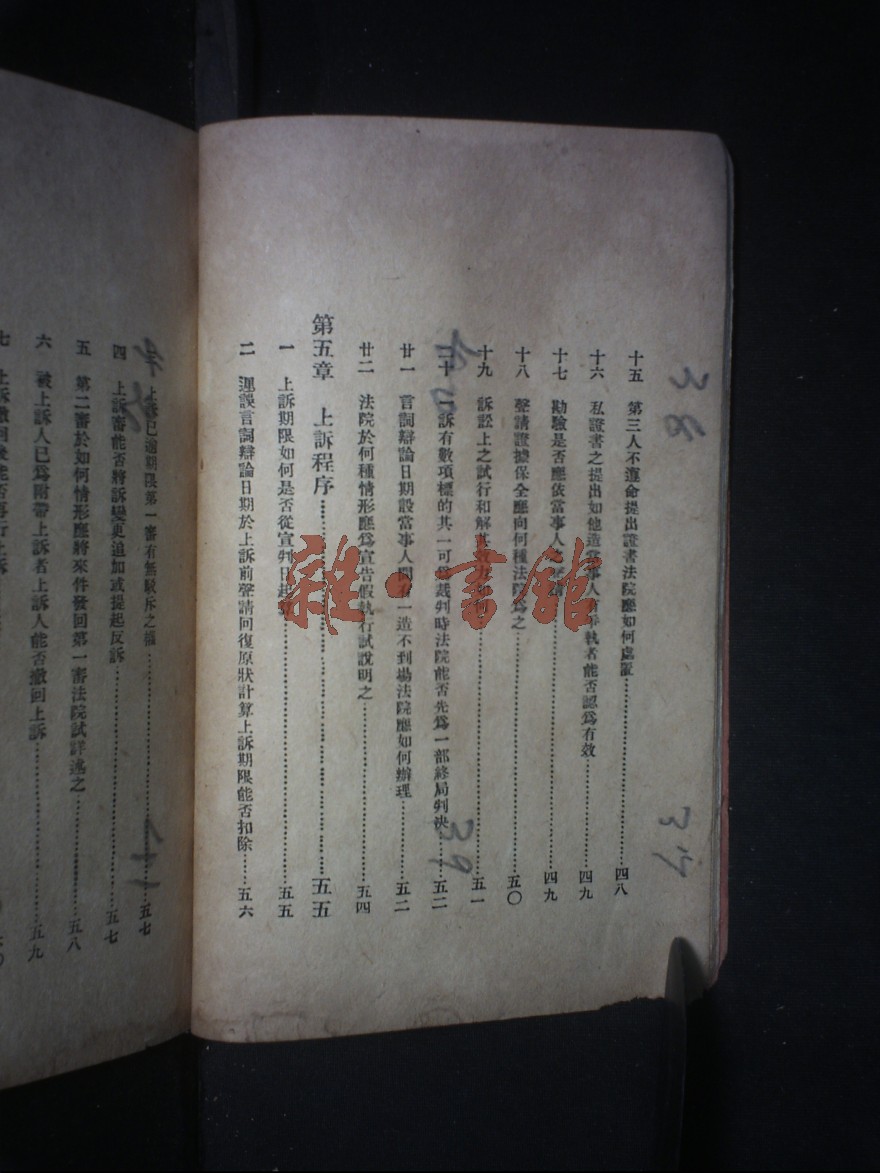 十五 第三人不遵命提出證書法院應如何處置…………四八
十六 私證書之提出如他造當事人有爭執者能否認爲有效…………四九
十七 勘驗是否應依當事人之…………四九
十八 聲請證據保全應向何種法院爲之…………五〇
十九 訴訟上之試行和解其效力如何…………五一
二十 一訴有數項標的其一可爲裁判時法院能否先爲一部終局判決…………五二
廿一 言詞辯論日期設當事人間有一造不到場法院應如何辦理…………五二
廿二 法院於何種情形應爲宣告假執行試說明之…………五四
第五章 上訴程序…………五五
一 上訴期限如何是否從宣判日起算…………五五
二 遲誤言詞辯論日期於上訴前聲請回復原狀計算上訴期限能否扣除…………五六
上訴已逾期限第一審有無駁斥之權…………五七
四 上訴審能否將訴變更追加或提起反訴…………五七
五 第二審於如何情形應將來件發回第一審法院試詳述之…………五八
六 被上訴人已爲附帶上訴者上訴人能否撤回上訴…………五九
七 上訴撤回後能否再行上訴
雜·書館
38
37
39